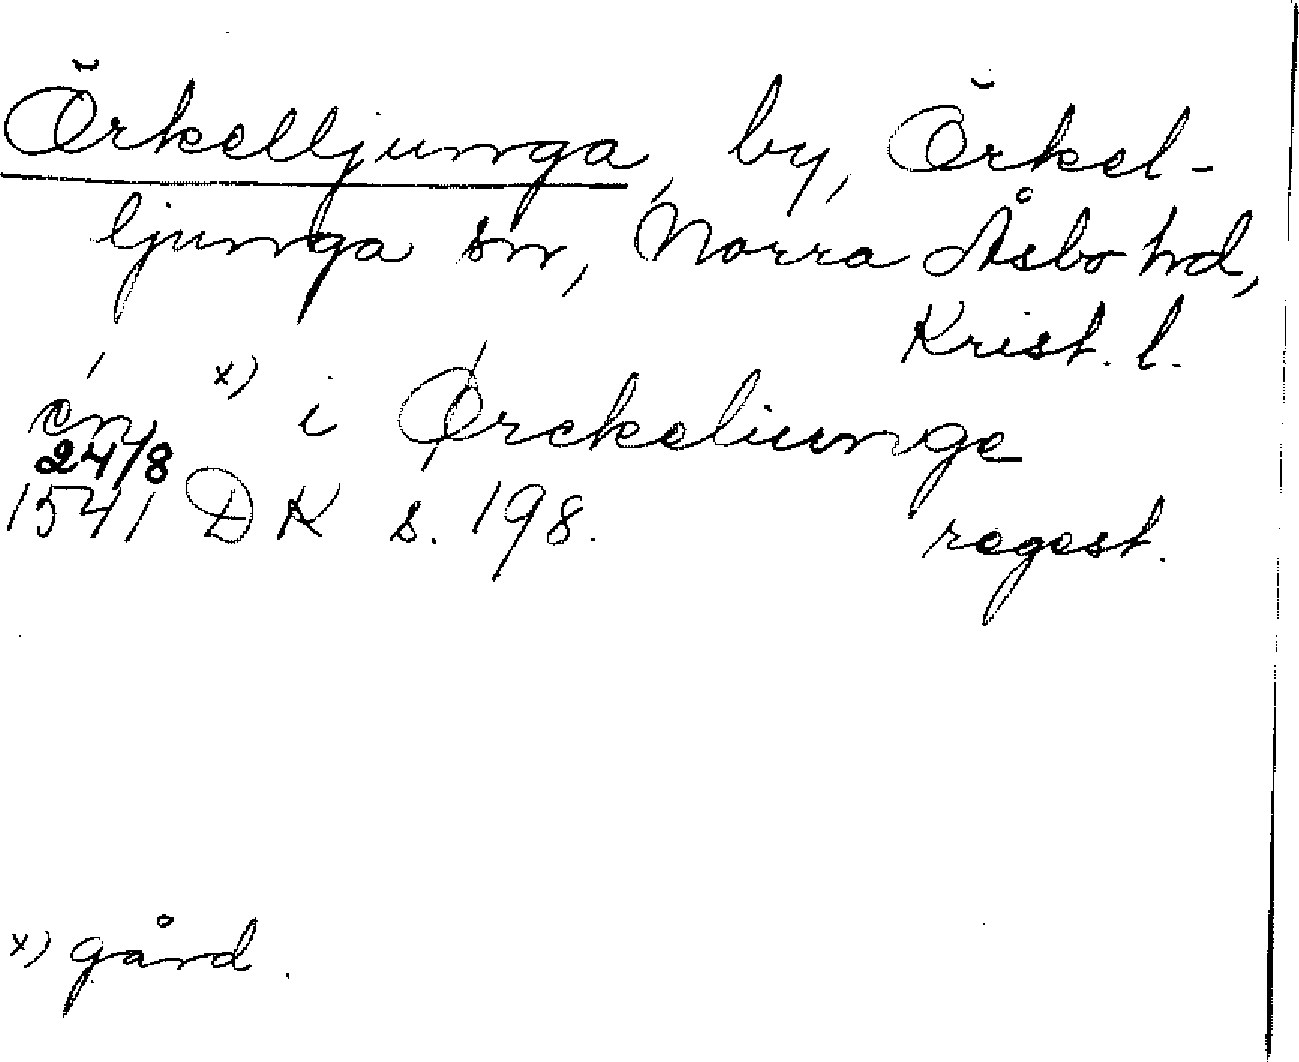 Örkelljunga, by, Örkel-
ljunga sn, Norra Åsbo hd,
Krist. l.
én x) i Ørckeliunge
24/8
1541 DK s. 198. regest.
x) gård.